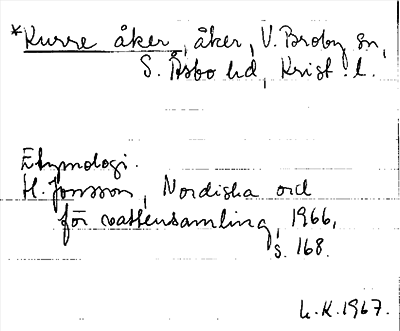 *Kurre åker, åker, V. Broby sn,
S. Åsbo hd, Krist. l.
Etymologi.
H. Jonsson, Nordiska ord
för vattensamling, 1966,
s. 168.
L.K. 1967.